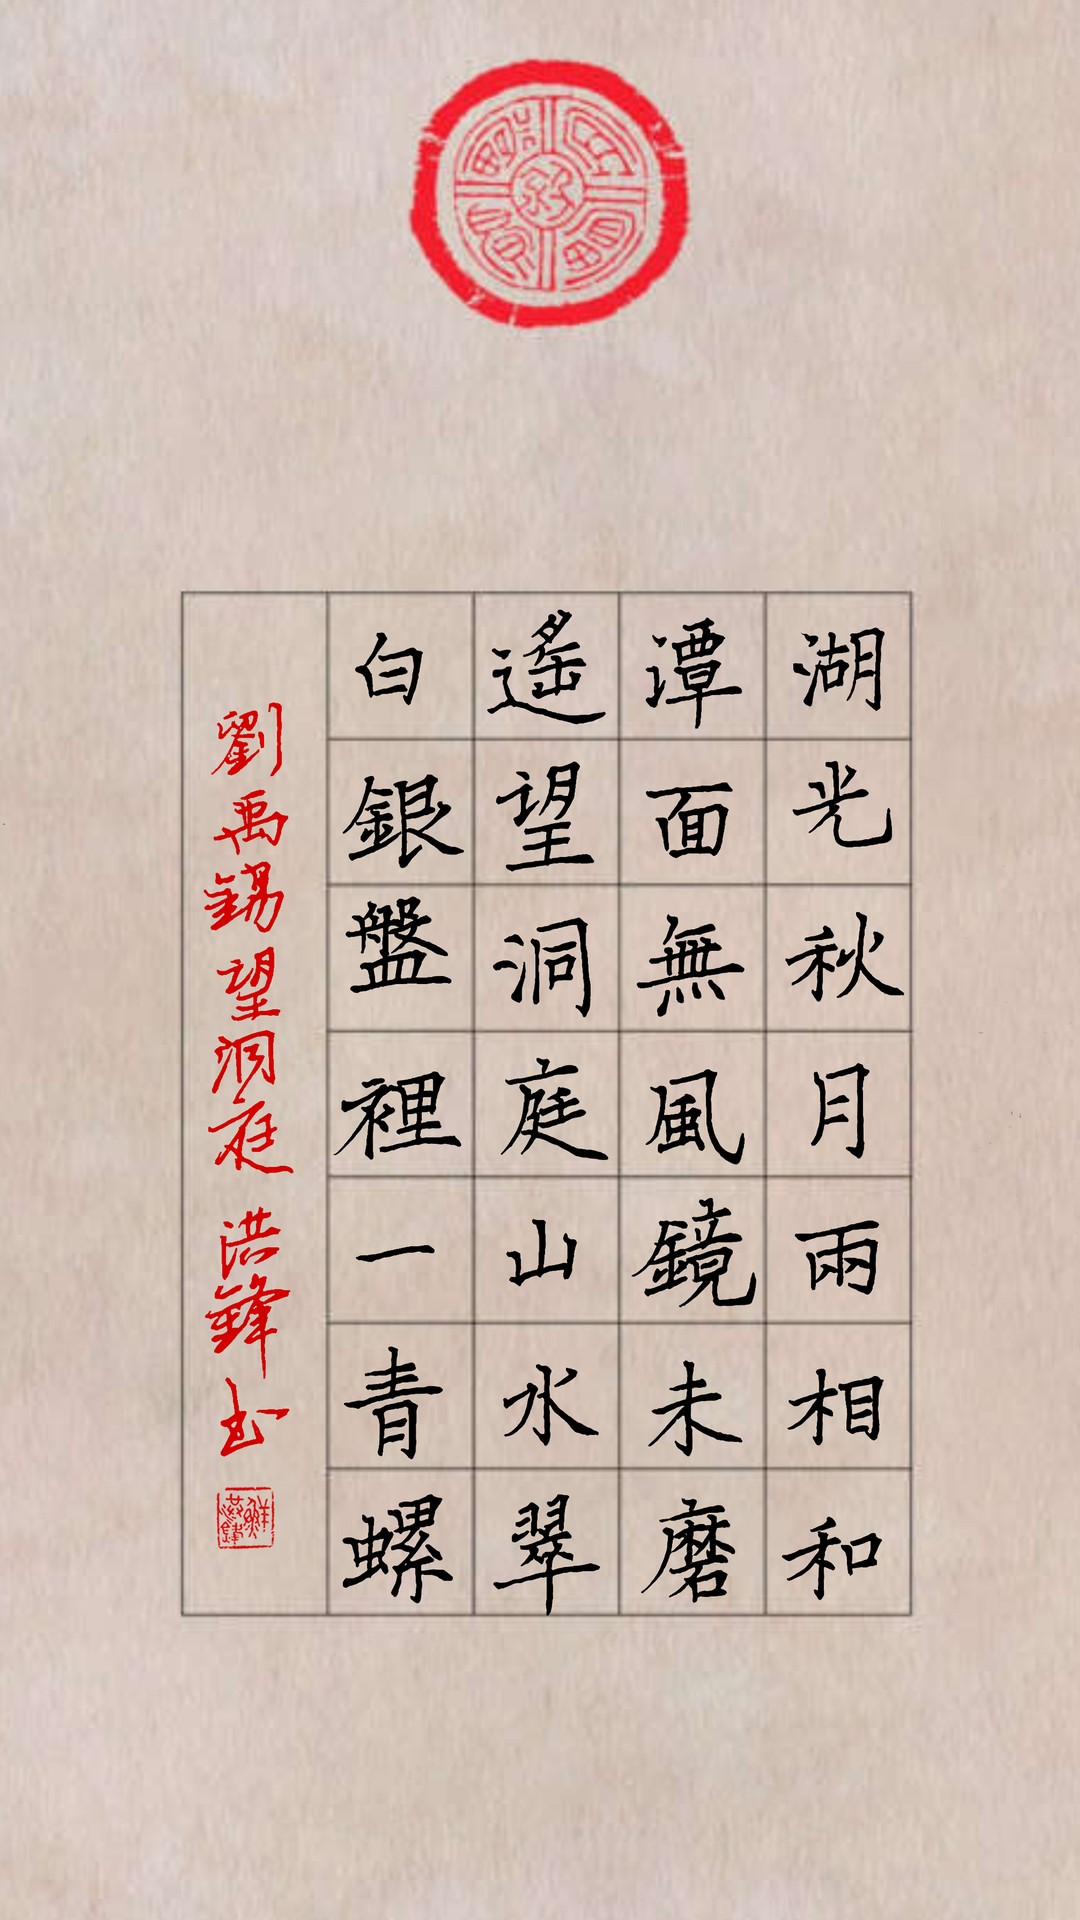 湖光秋月兩相和
潭面無風鏡未磨
遙望洞庭山水翠
白銀盤裡一青螺
劉禹錫望洞庭 洪鋒书